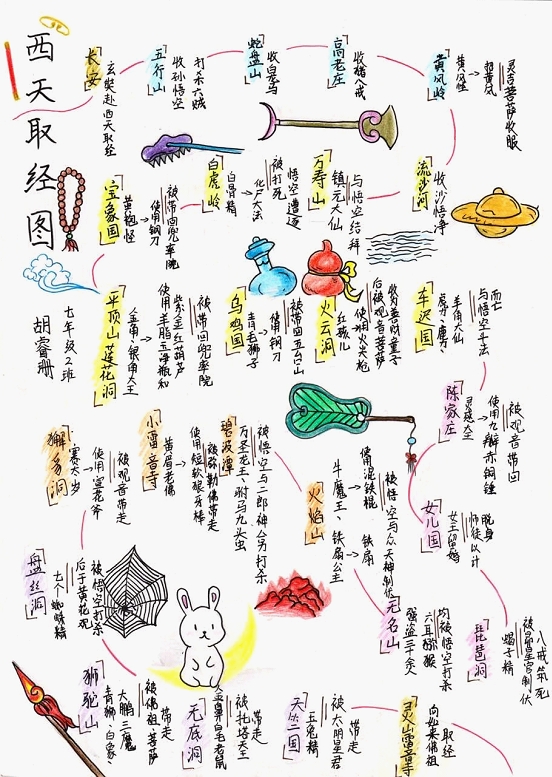 西天取经图
七年级2班
胡睿珊
长安
玄奘赴西天取经
五行山
收孙悟空
打杀六贼
蛇盘山
收白马
高老庄
收猪八戒
黄风岭
黄风怪→貂黄风
灵吉菩萨收服
流沙河
收沙悟净
万寿山
镇元大仙
与悟空结拜
白虎岭
白骨精→化尸大法
被打死
悟空遭逐
宝象国
黄袍怪→使用钢刀
被带回兜率院
平顶山
莲花洞
金角、银角大王
使用羊脂玉净瓶和
紫金红葫芦
被带回兜率院
乌鸡国
青毛狮子→使用钢刀
被带回五台山
火云洞
红孩儿
使用火尖枪
后被观音菩萨
收为善财童子
车迟国
虎力、鹿力、
羊力大仙
与悟空斗法
而亡
陈家庄
灵感大王→使用九瓣赤铜锤
被观音带回
女儿国
女王留婚
师徒以计
脱身
琵琶洞
蝎子精
被昴日星官制伏
八戒筑死
无名山
强盗三千余
六耳猕猴
均被悟空打杀
火焰山
牛魔王、铁扇公主
使用混铁棍
铁扇
被悟空与众天神制伏
碧波潭
万圣龙王、驸马九头虫
被悟空与二郎神合力打杀
小雷音寺
黄眉老佛
使用短软狼牙棒
被弥勒佛带走
獬豸洞
赛太岁→使用宣花斧
被观音带走
盘丝洞
七个蜘蛛精
后于黄花观
被悟空打杀
狮驼山
青狮、白象、
大鹏三魔
被佛祖、菩萨
带走
无底洞
金鼻白毛老鼠
被托塔天王
带走
天竺国
玉兔精
被太阴星君
带走
灵山雷音寺
向如来佛祖
取经